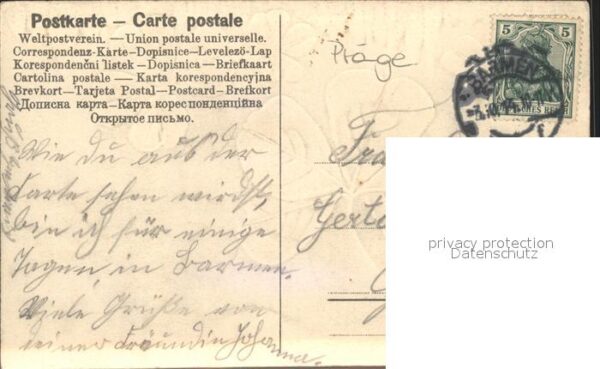 Postkarte – Carte postale
Weltpostverein. – Union postale universelle.
Correspondenz-Karte-Dopisnice-Levelezö-Lap
Korespondenční lístek - Dopisnica - Briefkaart
Cartolina postale – Karta korespondencyjna
Brevkort-Tarjeta Postal-Postcard-Brefkort
Дописна карта-Карта кореспонденційна
Открытое письмо.
Präge
5 5
BARMEN
Wie du aus der
Karte sehen wirdst,
bin ich für einige
Tagen, in Barmen.
Viele Grüße von
deiner Freundin Johanna.
privacy protection
Datenschutz